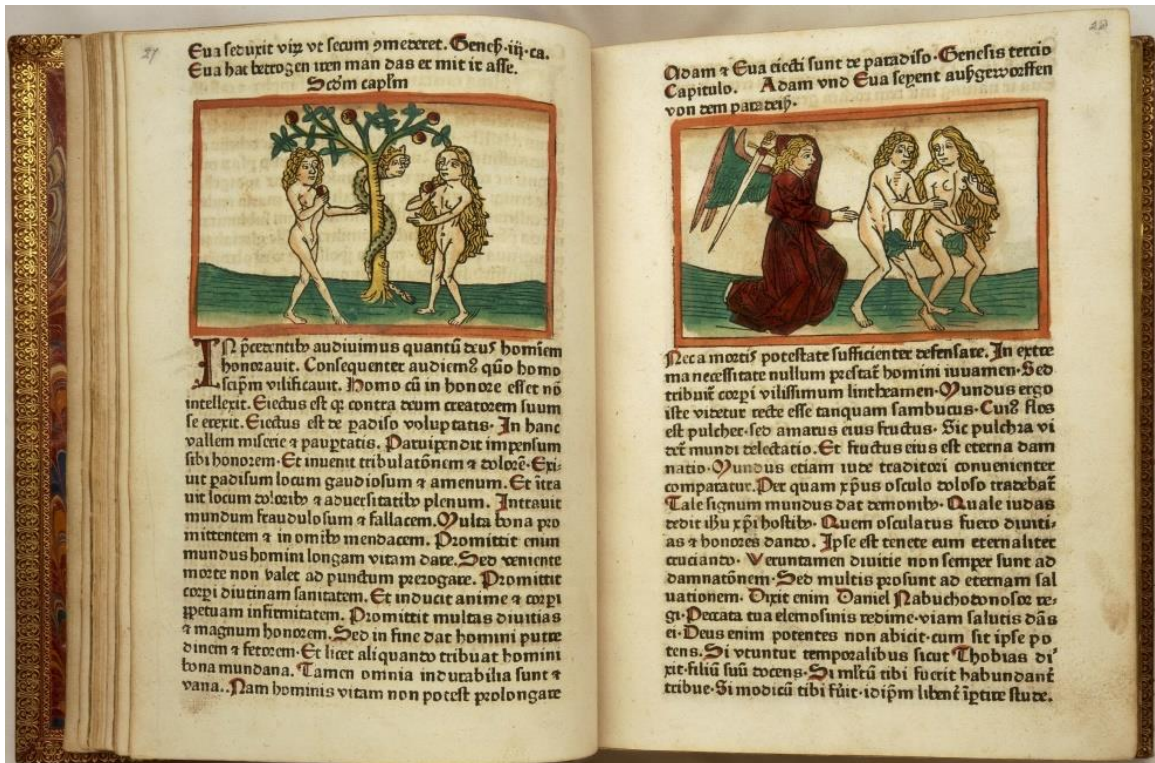 27
Eua seduxit virꝫ vt secum ꝯmederet. Geneß·iij·ca.
Eua hat betrogen iren man das er mit ir asse.
Scdm caplm
IN p̄cedentibꝰ audiuimus quantū deus homīem
honorauit. Consequenter audiemꝰ qūo homo
seip̄m vilificauit. Homo cū in honore esset nō
intellexit. Eiectus est qꝛ contra deum creatorem suum
se erexit. Eiectus est de padiso voluptatis. In hanc
vallem miserie ⁊ paupertatis. Paruipendit impensum
sibi honorem. Et inuenit tribulatōnem ⁊ dolorē. Exi-
uit padisum locum gaudiosum ⁊ amenum. Et ītra
uit locum doloribꝰ ⁊ aduersitatibꝰ plenum. Intrauit
mundum fraudulosum ⁊ fallacem. Multa bona pro
mittentem ⁊ in omībꝰ mendacem. Promittit enim
mundus homini longam vitam dare. Sed veniente
morte non valet ad punctum prerogare. Promittit
corpi diutinam sanitatem. Et inducit anime ⁊ corpi
ꝑpetuam infirmitatem. Promittit multas diuitias
⁊ magnum honorem. Sed in fine dat homini putre
dinem ⁊ fetorem. Et licet aliquando tribuat homini
bona mundana. Tamen omnia indurabilia sunt ⁊
vana.. Nam hominis vitam non potest prolongare
28
Adam ⁊ Eua eiecti sunt de paradiso. Genesis tercio
Capitulo. Adam vnd Eua seyent außgeworffen
von dem paradeiß.
Nec a mortis potestate sufficienter defensare. In extre
ma necessitate nullum prestat̄ homini iuuamen. Sed
tribuit̄ corpi vilissimum lintheamen. Mundus ergo
iste videtur recte esse tanquam sambucus. Cuiꝰ flos
est pulcher. sed amarus eius fructus. Sic pulchra vi
det̄ mundi delectatio. Et fructus eius est eterna dam
natio. Mundus etiam iude traditori conuenienter
comparatur. Per quam xp̄us osculo doloso tradebat̄
Tale signum mundus dat demonibꝰ. Quale iudas
dedit ih̄u xp̄i hostibꝰ. Quem osculatus fuero diuiti-
as ⁊ honores dando. Ipse est tenete eum eternaliter
cruciando. Veruntamen diuitie non semper sunt ad
damnatōnem. Sed multis prosunt ad eternam sal
uationem. Dixit enim Daniel Nabuchodonosor re-
gi. Peccata tua elemosinis redime. viam salutis dās
ei. Deus enim potentes non abicit. cum sit ipse po
tens. Si vtuntur temporalibus sicut Thobias di
xit. filiū suū docens. Si ml̄tū tibi fuerit habundant̄
tribue. Si modicū tibi fūit. id ip̄m libent̄ īptire stude.